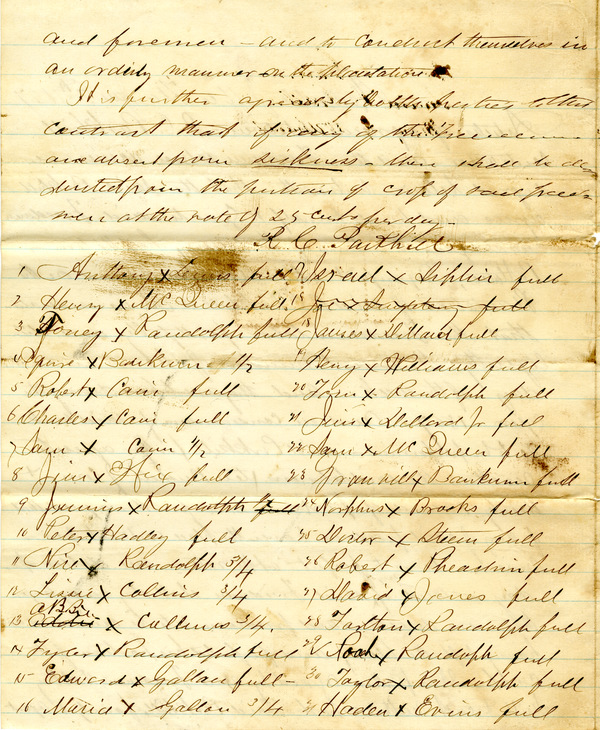 and foremen - and to conduct themselves in
an orderly manner on the plantation.
It is further agreed by both parties to this
contract that if any of the Freedmen
are absent from sickness - there shall be de-
ducted from the portion of crop of said freed-
men at the rate of 25 cents per day -
R. C. Parkhill
1 Anthony x Lewis full
2 Henry x McQueen full
3 Toney x Randolph full
x 1/2
5 Robert x Cain full
6 Charles x Cain full
7 Sam x Cain 1/2
8 Jim x Hix full
9 Jennings x Randolph full
10 Peter x Hadley full
11 x Randolph 3/4
12 Lissie x Collins 3/4
13 x Collins 3/4
14 Tyler x Randolph full
15 Edward x Gallon full -
16 Maria x Gallon 3/4
17 Israel x full
18 Joe x full
18 James x full
19 Henry x Williams full
20 Tom x Randolph full
21 Jim x Jr full
22 Sam x McQueen full
23 x full
24 Norphus x Brooks full
25 Doctor x full
26 Robert x full
27 David x Jones full
28 Tarlton x Randolph full
29 Noah x Randolph full
30 Taylor x Randolph full
31 Haden x Evins full